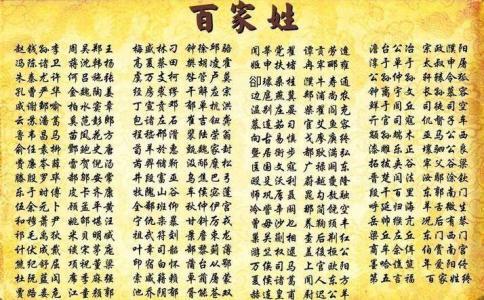 百家姓
赵钱孙李 周吴郑王
冯陈褚卫 蒋沈韩杨
朱秦尤许 何吕施张
孔曹严华 金魏陶姜
戚谢邹喻 柏水窦章
云苏潘葛 奚范彭郎
鲁韦昌马 苗凤花方
俞任袁柳 酆鲍史唐
费廉岑薛 雷贺倪汤
滕殷罗毕 郝邬安常
乐于时傅 皮卞齐康
伍余元卜 顾孟平黄
和穆萧尹 姚邵湛汪
祁毛禹狄 米贝明臧
计伏成戴 谈宋茅庞
熊纪舒屈 项祝董梁
杜阮蓝闵 席季麻强
贾路娄危 江童颜郭
梅盛林刁 钟徐邱骆
高夏蔡田 樊胡凌霍
虞万支柯 昝管卢莫
经房裘缪 干解应宗
丁宣贲邓 郁单杭洪
包诸左石 崔吉钮龚
程嵇邢滑 裴陆荣翁
荀羊於惠 甄曲家封
芮羿储靳 汲邴糜松
井段富巫 乌焦巴弓
牧隗山谷 车侯宓蓬
全郗班仰 秋仲伊宫
宁仇栾暴 甘钭厉戎
祖武符刘 景詹束龙
叶幸司韶 郜黎蓟薄
印宿白怀 蒲邰从鄂
索咸籍赖 卓蔺屠蒙
池乔阴郁 胥能苍双
闻莘党翟 谭贡劳逄
姬申扶堵 冉宰郦雍
卻璩桑桂 濮牛寿通
边扈燕冀 郏浦尚农
温别庄晏 柴瞿阎充
慕连茹习 宦艾鱼容
向古易慎 戈廖庾终
暨居衡步 都耿满弘
匡国文寇 广禄阙东
欧殳沃利 蔚越夔隆
师巩厍聂 晁勾敖融
冷訾辛阚 那简饶空
曾毋沙乜 养鞠须丰
巢关蒯相 查后荆红
游竺权逯 盖益桓公
万俟司马 上官欧阳
夏侯诸葛 闻人东方
赫连皇甫 尉迟公羊
澹台公冶 宗政濮阳
淳于单于 太叔申屠
公孙仲孙 轩辕令狐
钟离宇文 长孙慕容
鲜于闾丘 司徒司空
亓官司寇 仉督子车
颛孙端木 巫马公西
漆雕乐正 壤驷公良
拓跋夹谷 宰父谷梁
晋楚闫法 汝鄢涂钦
段干百里 东郭南门
呼延归海 羊舌微生
岳帅缑亢 况后有琴
梁丘左丘 东门西门
商牟佘佴 伯赏南宫
墨哈谯笪 年爱阳佟
第五言福 百家姓终